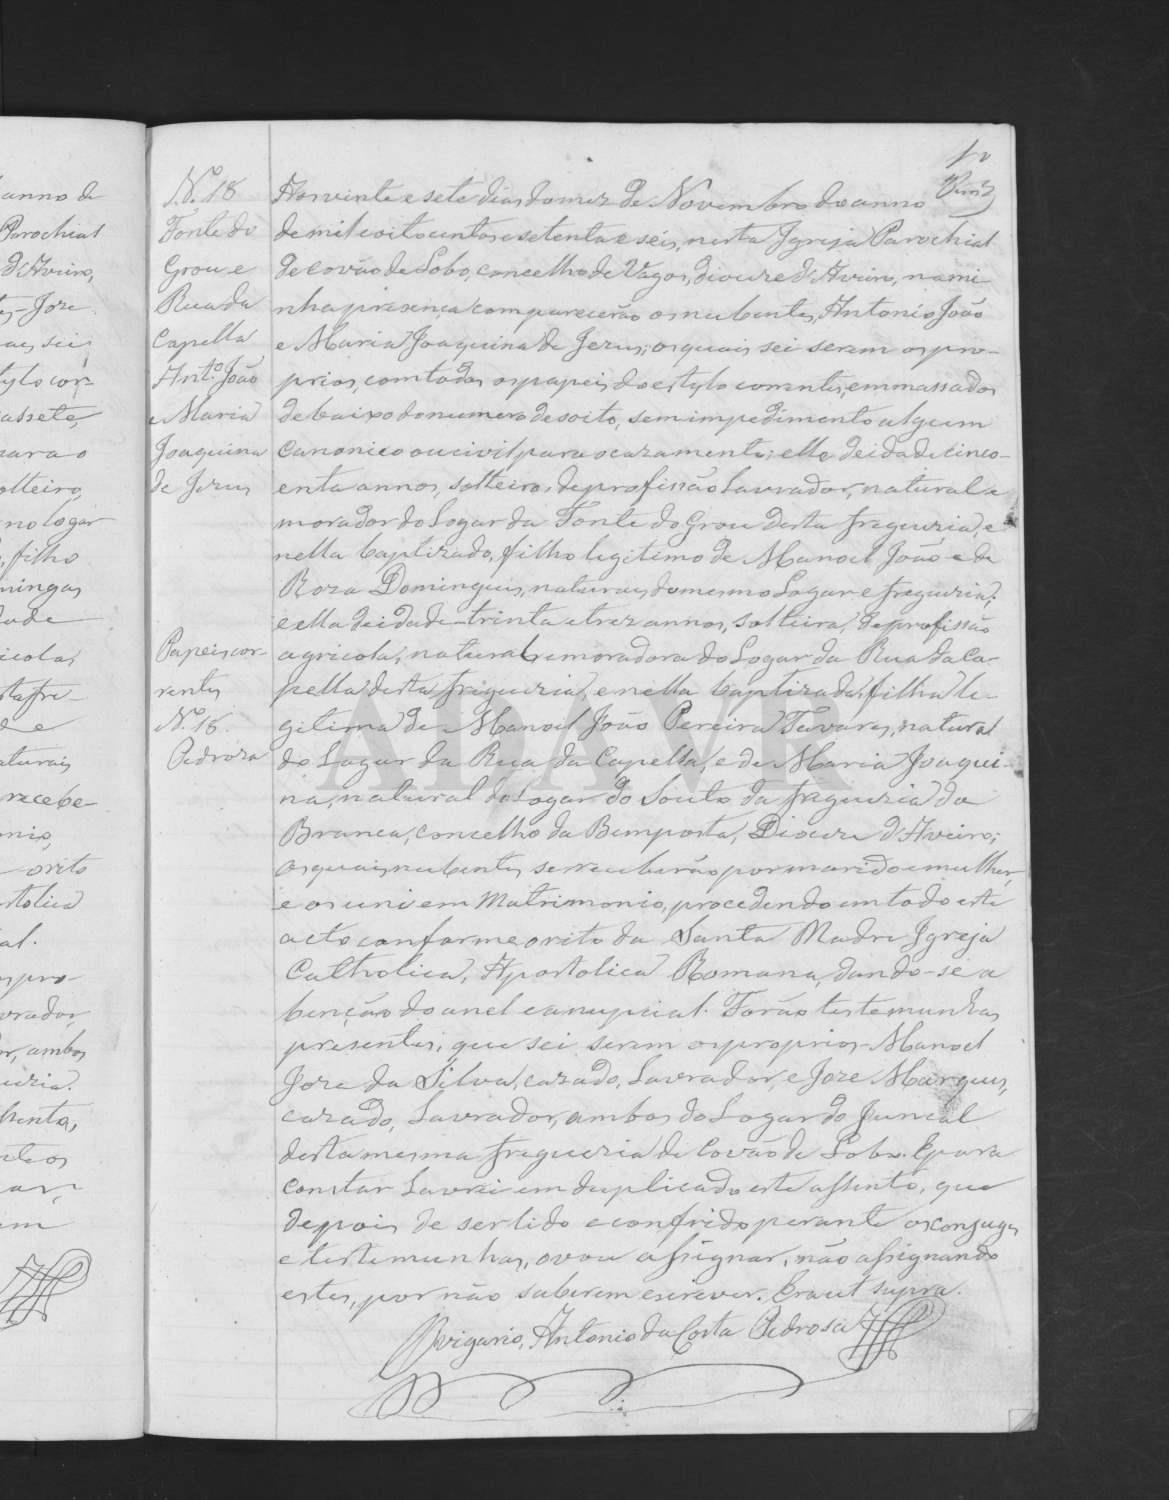 N.º 18
Fonte do
Grou e
Rua da
Capella
Ant.º João
e Maria
Joaquina
de Jesus
Papeis cor-
rentes
N.º 18.
Pedroza
Aos vinte e sete dias do mez de Novembro do anno
de mil e oitocentos e setenta e seis, nesta Igreja Parochial
de Covão de Lobo, concelho de Vagos, diocese d'Aveiro, na mi-
nha presença comparecerão os nubentes, Antonio João
e Maria Joaquina de Jesus; os quais sei serem os pro-
prios, com todos os papeis do estylo correntes, emmassados
debaixo do numero desoito, sem impedimento algum
canonico ou civil para o cazamento; elle de idade cinco-
enta annos, solteiro, de profissão Lavrador, natural e
morador do Logar da Fonte do Grou desta freguezia, e
nella baptizado, filho legitimo de Manoel João e de
Roza Domingues, naturais do mesmo Logar e freguezia;
e ella de idade trinta e trez annos, solteira, de profissão
agricola, natural e moradora do Logar da Rua da Ca-
pella desta freguezia, e nella baptizada, filha le-
gitima de Manoel João Pereira Tavares, natural
do Logar da Rua da Capella, e de Maria Joaqui-
na, natural do Logar do Souto da freguezia da
Branca, concelho da Bemposta, Diocese d'Aveiro;
os quais nubentes se receberão por marido e mulher,
e os uni em Matrimonio, procedendo em todo este
acto conforme o rito da Santa Madre Igreja
Catholica, Apostolica Romana, dando-se a
benção do anel e a nupcial. Forão testemunhas
presentes, que sei serem os proprios - Manoel
Joze da Silva, cazado, Lavrador, e Joze Marques,
cazado, Lavrador, ambos do Logar do Juncal
desta mesma freguezia de Covão de Lobo. E para
constar Lavrei em duplicado este assento, que
depois de ser lido e confrido perante os conjuges
e testemunhas, o vou assignar, não assignando
estes, por não saberem escrever. Era ut supra.
O vigario, Antonio da Costa Pedrosa
anno de
Parochial
d'Aveiro,
Joze
filho
recebe-
ambos
ADAVR